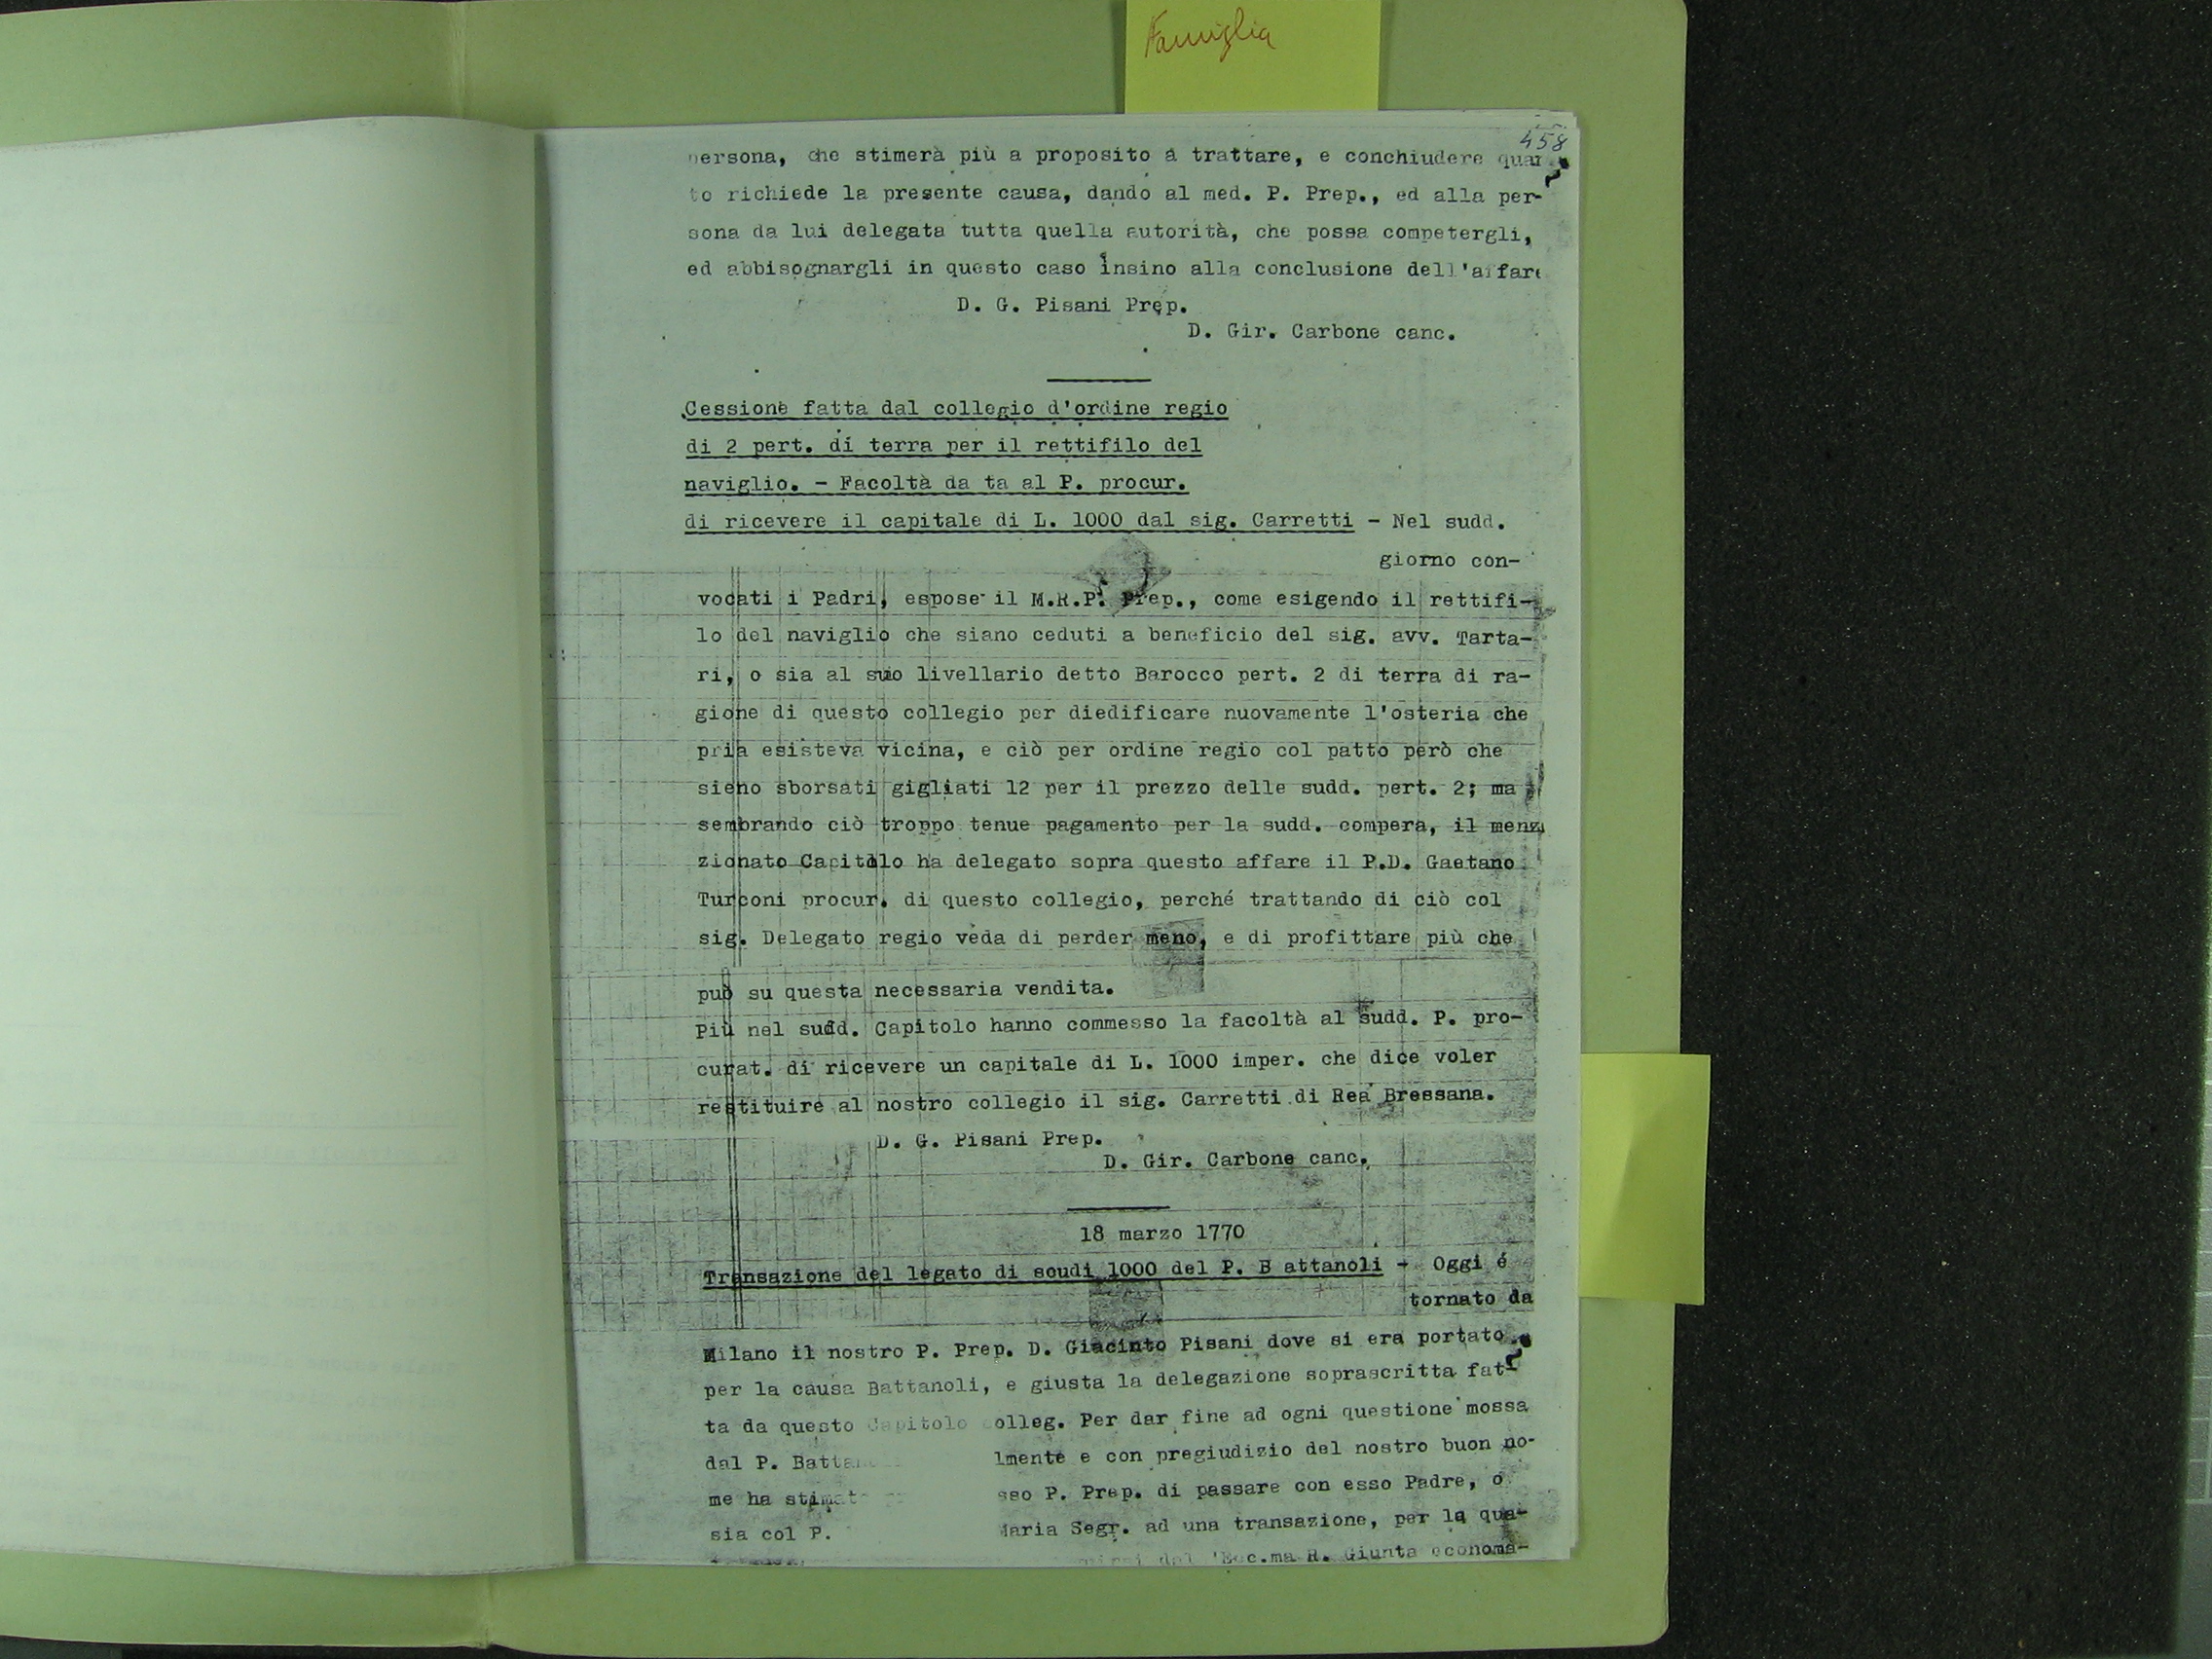 Famiglia
458
persona, che stimerà più a proposito a trattare, e conchiudere quan
to richiede la presente causa, dando al med. P. Prep., ed alla per-
sona da lui delegata tutta quella autorità, che possa competergli,
ed abbisognargli in questo caso insino alla conclusione dell'affare
D. G. Pisani Prep.
D. Gir. Carbone canc.
Cessione fatta dal collegio d'ordine regio
di 2 pert. di terra per il rettifilo del
naviglio. - Facoltà da ta al P. procur.
di ricevere il capitale di L. 1000 dal sig. Carretti - Nel sudd.
giorno con-
vocati i Padri, espose il M.R.P. Prep., come esigendo il rettifi-
lo del naviglio che siano ceduti a beneficio del sig. avv. Tarta-
ri, o sia al suo livellario detto Barocco pert. 2 di terra di ra-
gione di questo collegio per diedificare nuovamente l'osteria che
pria esisteva vicina, e ciò per ordine regio col patto però che
sieno sborsati gigliati 12 per il prezzo delle sudd. pert. 2; ma
sembrando ciò troppo tenue pagamento per la sudd. compera, il menz
zionato Capitolo ha delegato sopra questo affare il P.D. Gaetano
Turconi procur. di questo collegio, perché trattando di ciò col
sig. Delegato regio veda di perder meno, e di profittare più che
può su questa necessaria vendita.
Più nel sudd. Capitolo hanno commesso la facoltà al sudd. P. pro-
curat. di ricevere un capitale di L. 1000 imper. che dice voler
restituire al nostro collegio il sig. Carretti di Rea Bressana.
D. G. Pisani Prep.
D. Gir. Carbone canc.
18 marzo 1770
Transazione del legato di scudi 1000 del P. B attanoli - Oggi é
tornato da
Milano il nostro P. Prep. D. Giacinto Pisani dove si era portato
per la causa Battanoli, e giusta la delegazione soprascritta fat-
ta da questo Capitolo colleg. Per dar fine ad ogni questione mossa
dal P. Batta lmente e con pregiudizio del nostro buon no-
me ha stimat sso P. Prep. di passare con esso Padre, o
sia col P. Maria Segr. ad una transazione, per la qua-
dal 'Ecc.ma R. Giunta economa-